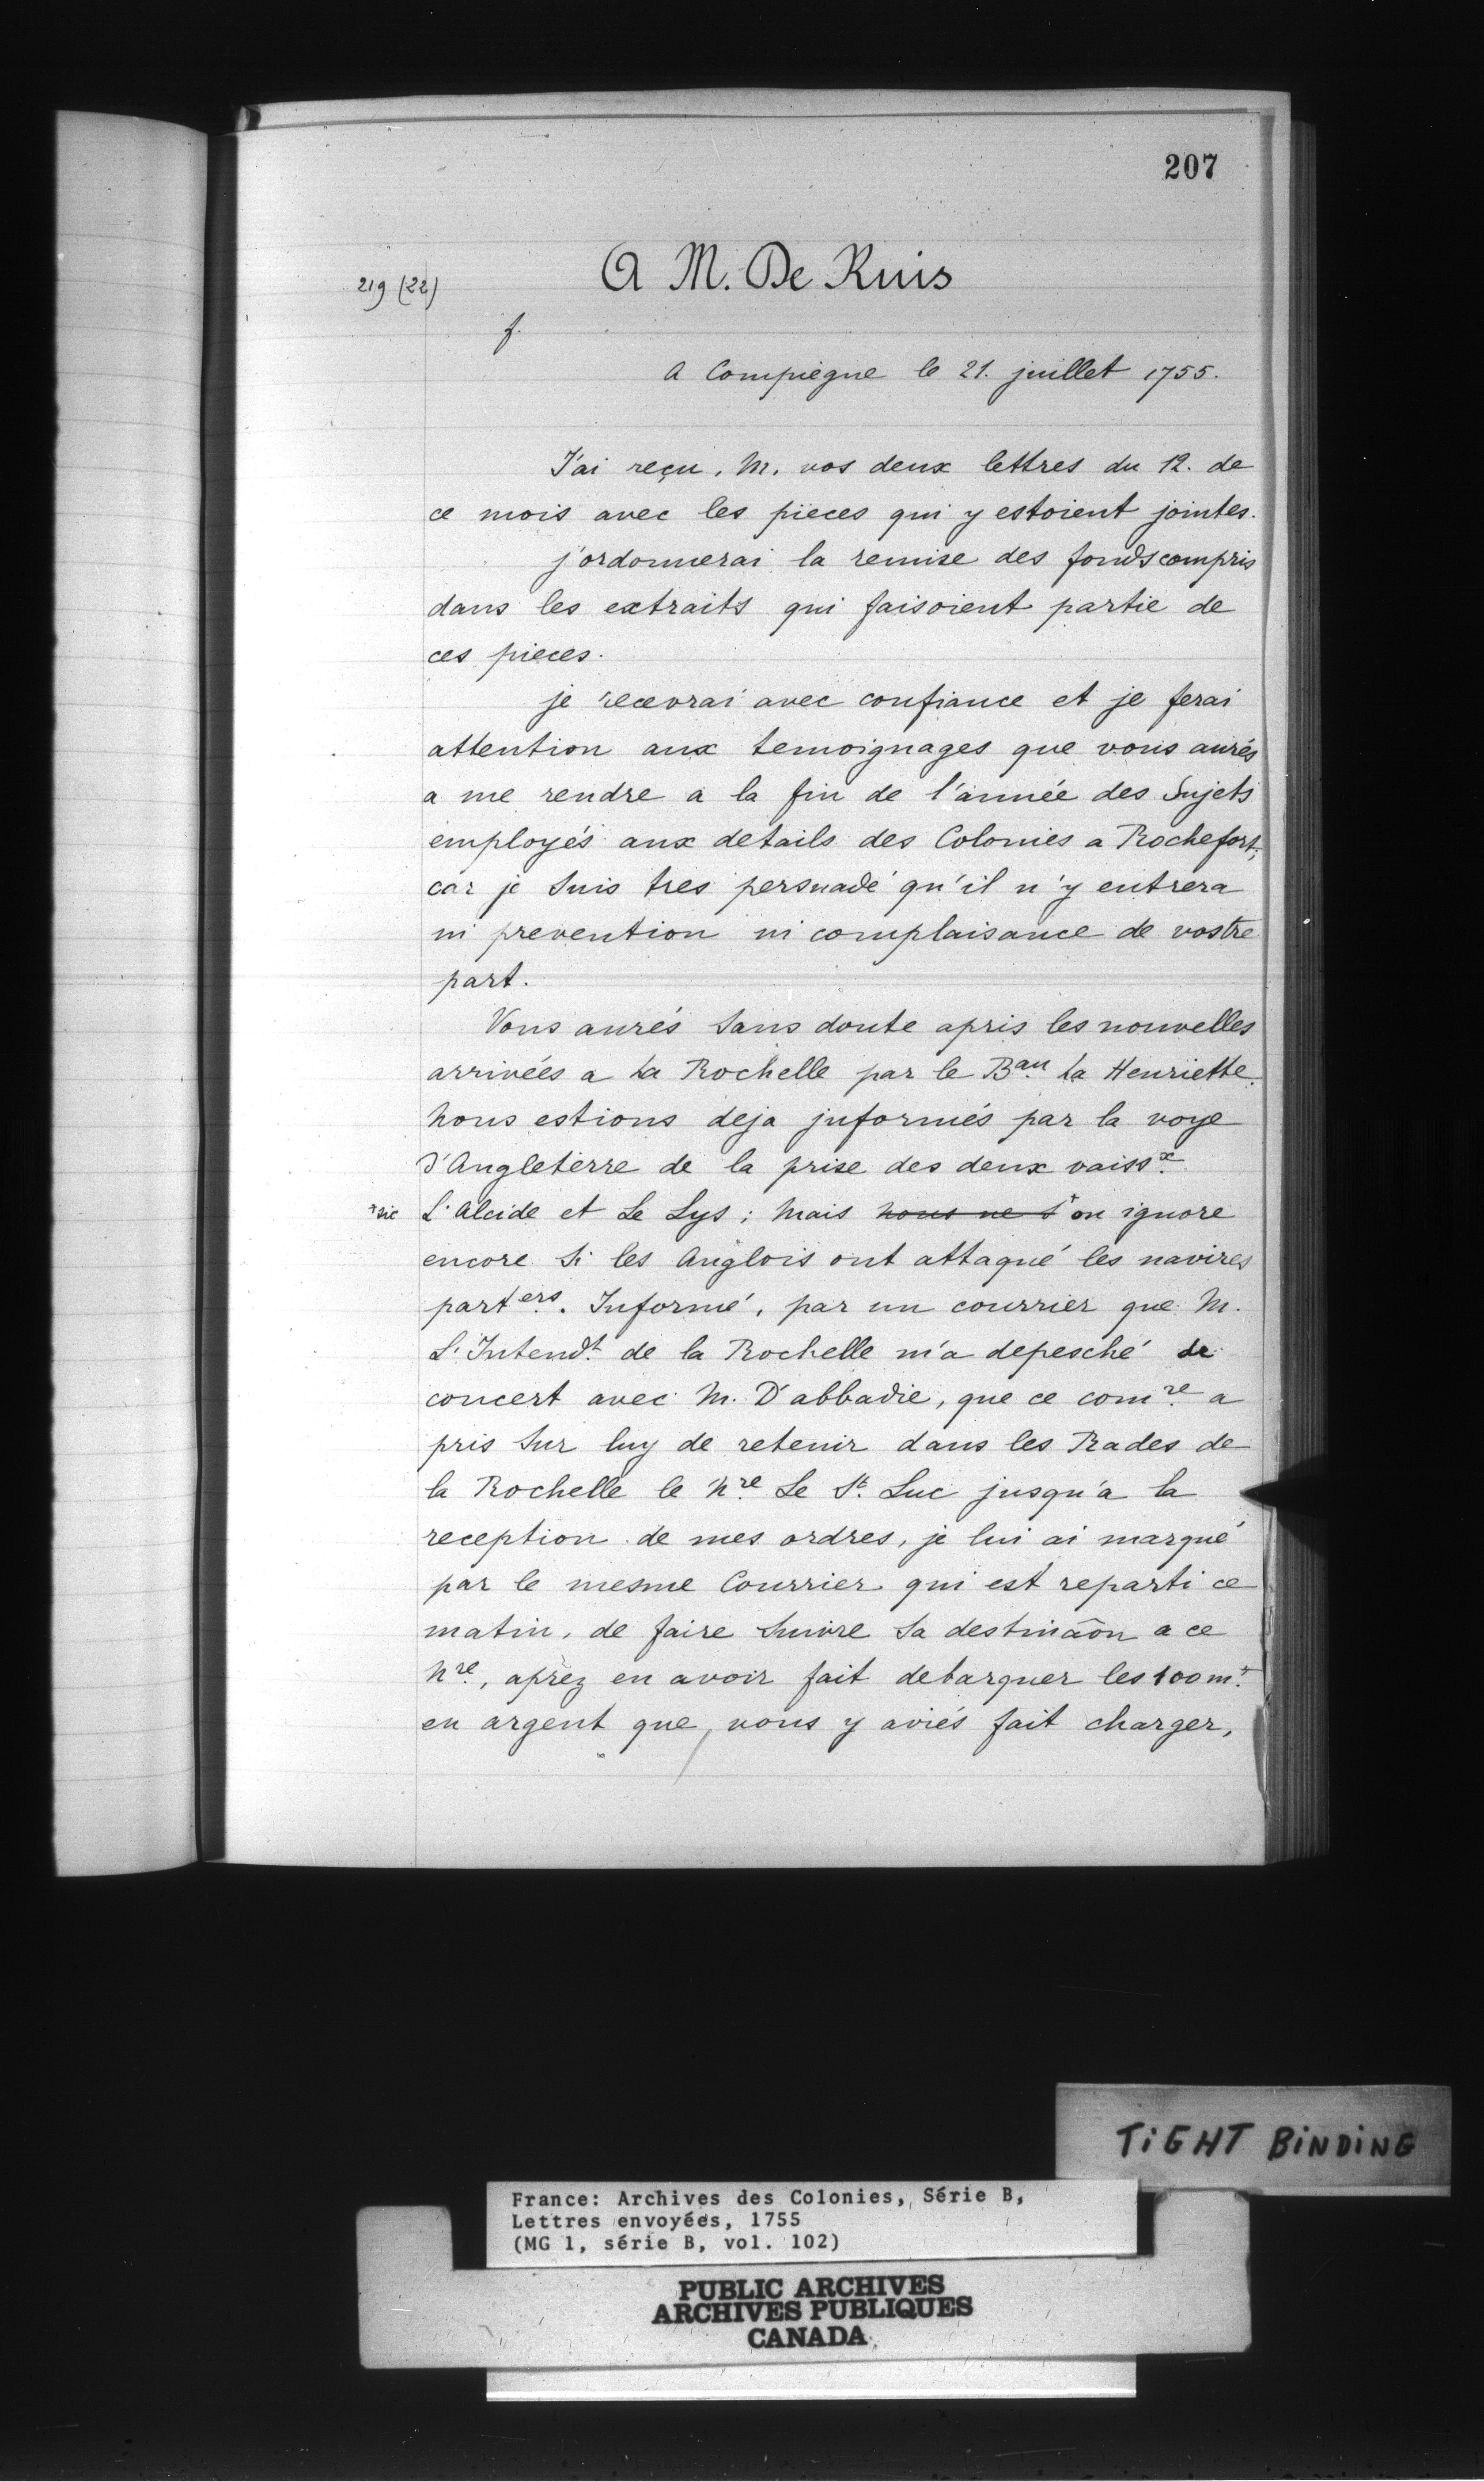 207
219 (22)
A M. De Ruis
f.
A Compiegne le 21. juillet 1755.
J'ai reçu, M. vos deux lettres du 12. de
ce mois avec les pieces qui y estoient jointes.
j'ordonnerai la remise des fonds compris
dans les extraits qui faisoient partie de
ces pieces.
je recevrai avec confiance et je ferai
attention aux temoignages que vous aurés
a me rendre a la fin de l'année des Sujets
employés aux details des Colonies a Rochefort;
car je suis tres persuadé qu'il n'y entrera
ni prevention ni complaisance de vostre
part.
Vous aurés sans doute apris les nouvelles
arrivées a La Rochelle par le Bau. La Henriette.
Nous estions deja jnformés par la voye
d'Angleterre de la prise des deux vaissx.
+sic L'Alcide et Le Lys; Mais nous ne s+on ignore
encore si les Anglois ont attaqué les navires
parters. Informé, par un courrier que M.
L'Intendt. de la Rochelle m'a depesché de
concert avec M. D'abbadie, que ce comre. a
pris sur luy de retenir dans les Rades de
la Rochelle le Nre. Le St. Luc jusqu'a la
reception de mes ordres, je lui ai marqué
par le mesme Courrier qui est reparti ce
matin, de faire suivre sa destinaõn a ce
Nre., aprez en avoir fait debarquer les 100 m.
en argent que vous y aviés fait charger,
TiGHT BiNDiNG
France: Archives des Colonies, Série B,
Lettres envoyées, 1755
(MG 1, série B, vol. 102)
PUBLIC ARCHIVES
ARCHIVES PUBLIQUES
CANADA